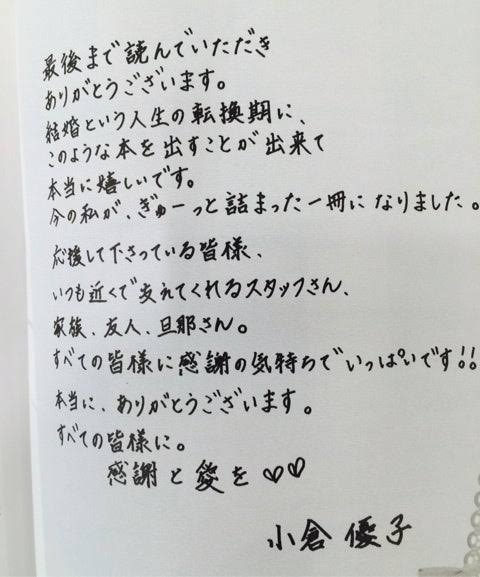 最後まで読んでいただき
ありがとうございます。
結婚という人生の転換期に、
このような本を出すことが出来て
本当に嬉しいです。
今の私が、ぎゅーっと詰まった一冊になりました。
応援して下さっている皆様、
いつも近くで支えてくれるスタッフさん、
家族、友人、旦那さん。
すべての皆様に感謝の気持ちでいっぱいです!!
本当に、ありがとうございます。
すべての皆様に。
感謝と愛を♡♡
小倉優子